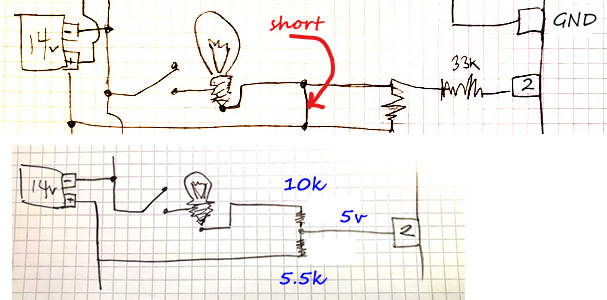 short
GND
14v
-
+
33k
2
10k
14v
-
+
5v
2
5.5k